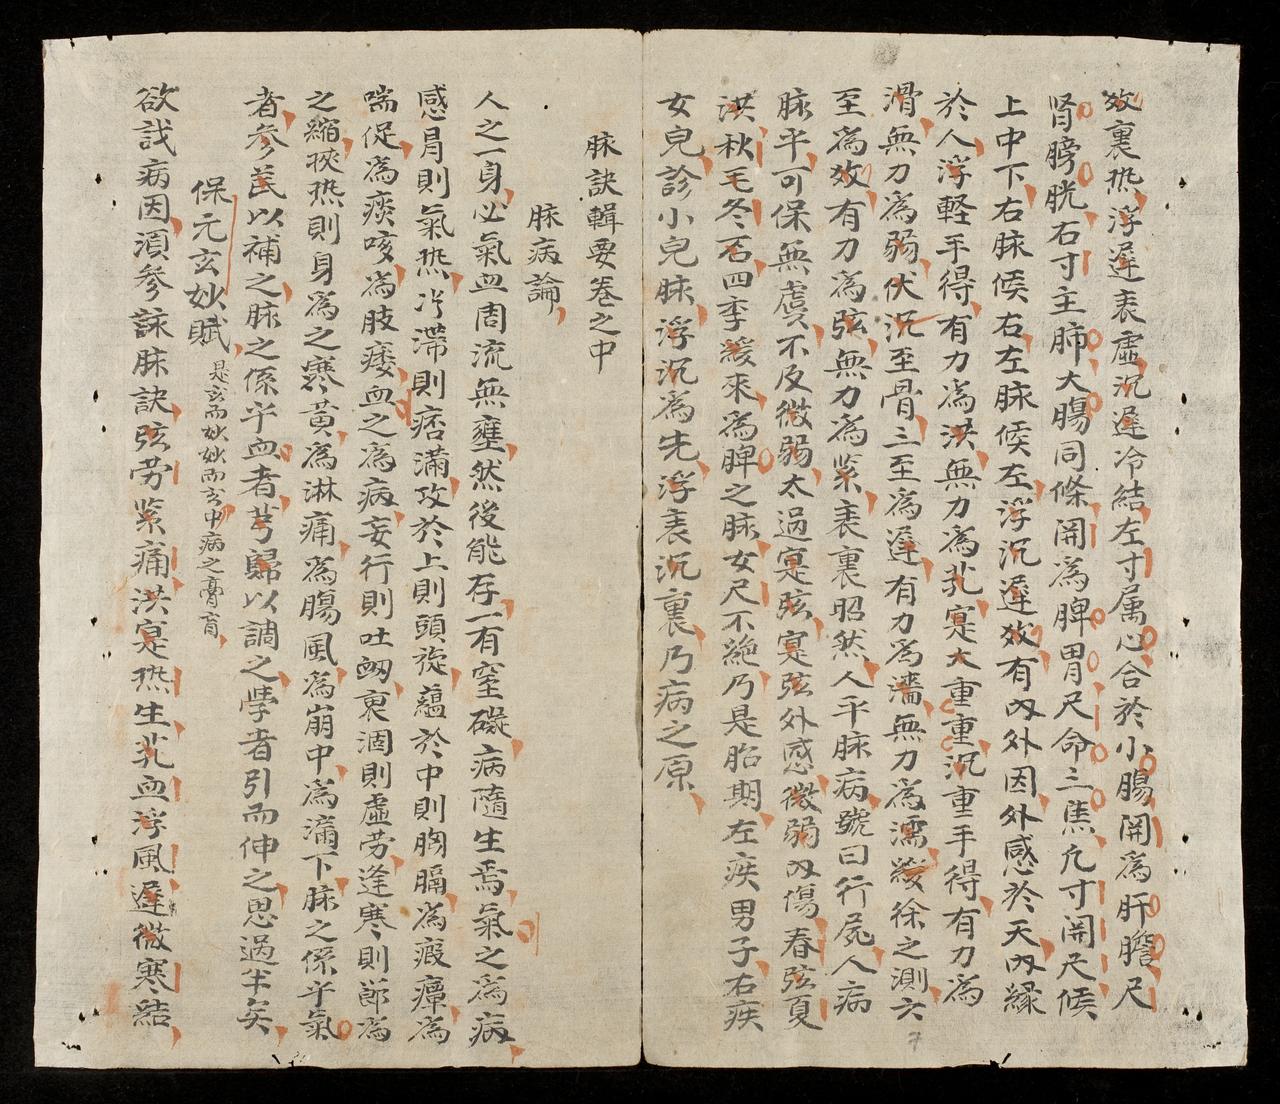 效裏热浮遲表虛沉遲冷結左寸属心合於小腸関為肝膽尺
肾膀胱右寸主肺大腸同條関為脾胃尺命三焦凡寸関尺候
上中下右脉候右左脉候左浮沉遲效有內外因外感於天內縁
於人浮軽手得有力為洪無力為芤寔大重重沉重手得有力為
滑無力為弱伏沉至骨三至為遲有力為濇無力為濡緩徐之測六
至為效有力為弦無力為紧表裏昭然人平脉病號曰行屍人病
脉平可保無虞不及微弱太過寔弦寔弦外感微弱內傷春弦夏
洪秋毛冬石四季緩來為脾之脉女尺不絶乃是胎期左疾男子右疾
女兒診小兒脉浮沉為先浮表沉裏乃病之原
脉訣輯要卷之中
脉病論
人之一身必氣血周流無壅然後能存一有窒礙病隨生焉氣之為病
感冐則氣热冷滞則痞滿攻於上則頭旋蘊於中則胸膈為瘕瘴為
喘促為痰咳為肢痿血之為病妄行則吐衂衷涸則虛劳逢寒則節為
之縮挾热則身為之寒黃為淋痛為腸風為崩中為滯下脉之係乎氣
者参芪以補之脉之係乎血者芎歸以調之學者引而伸之思過半矣
保元玄妙賦 是玄而妙妙而玄中病之膏肓
欲識病因須參詠脉訣弦劳紧痛洪寔热生芤血浮風遲微寒結